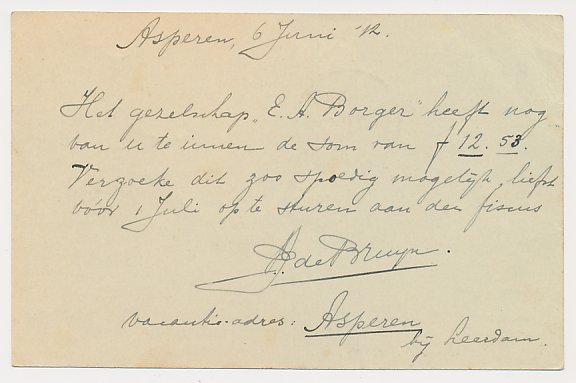 Asperen, 6 Juni '12.
Het gezelschap „E. A. Borger" heeft nog
van u te innen de som van f 12.53.
Verzoeke dit zoo spoedig mogelijk, liefst
vóór 1 Juli op te sturen aan den fiscus
J. de Bruyn.
vacantie-adres: Asperen
bij Leerdam.